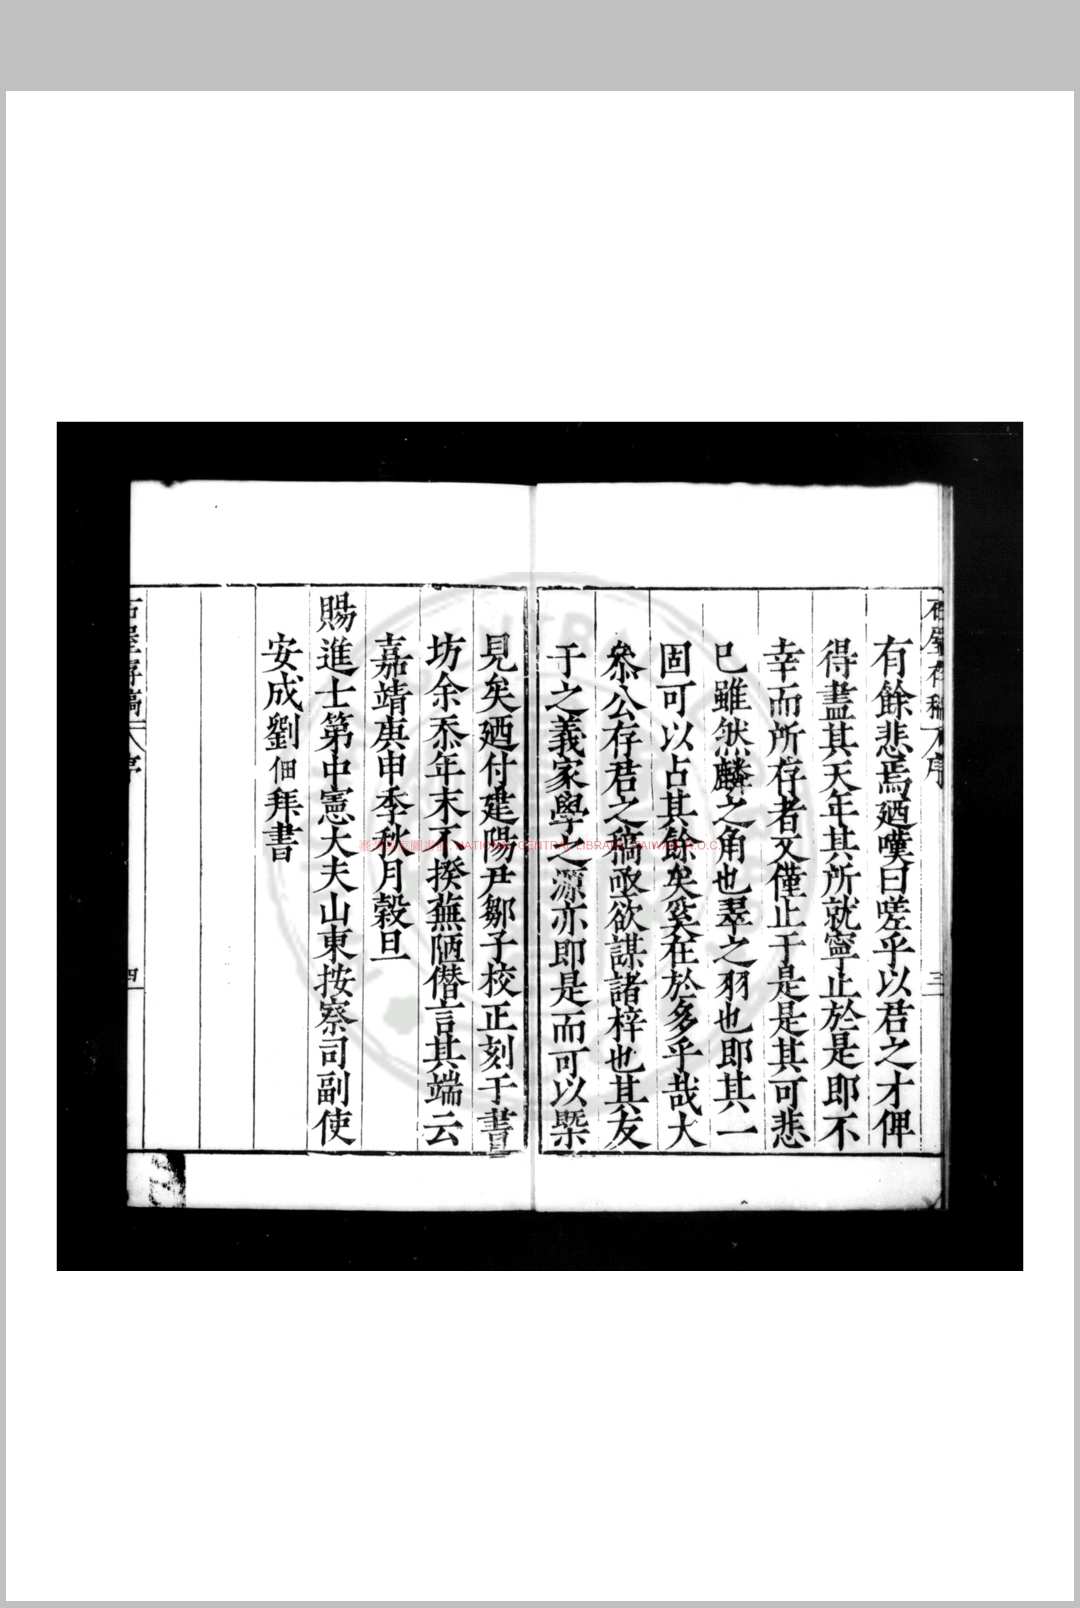 有餘悲焉廼嘆曰嗟乎以君之才俾
得盡其天年其所就寧止於是即不
幸而所存者又僅止于是是其可悲
已雖然麟之角也翠之羽也即其一
固可以占其餘矣奚在於多乎哉大
叅公存君之稿亟欲謀諸梓也其友
于之義家學之源亦即是而可以槩
見矣廼付建陽尹鄒子校正刻于書
坊余忝年末不揆蕪陋僭言其端云
嘉靖庚申季秋月穀旦
賜進士第中憲大夫山東按察司副使
安成劉佃拜書
序
三
四
NATIONAL CENTRAL LIBRARY, TAIWAN, R.O.C.